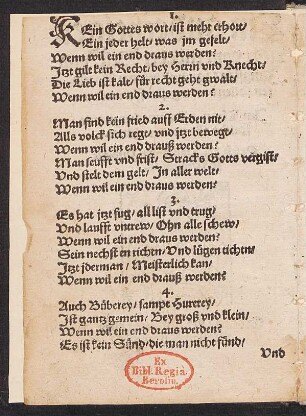 1.
KEin Gottes wort/ist meht erhort/
Ein jeder helt/ was jm gefelt/
Wenn wil ein end draus werden?
Itzt gilt kein Recht/ bey Herrn vnd Knecht/
Die Lieb ist kalt/ für recht geht gwalt/
Wenn wil ein end draus werden?
2.
Man find kein fried auff Erden nit/
Alls volck sich rege/ vnd jtzt bewegt/
Wenn wil ein end drauß werden?
Man seufft vnd frist/ Stracks Gotts vergist/
Vnd stelt dem gelt/ In aller welt/
Wenn wil ein end draus werden?
3.
Es hat jtzt fug/ all list vnd trug/
Vnd laufft vntrew/ Ohn alle schew/
Wenn wil ein end draus werden?
Sein nechsten richten/ Vnd lügen tichten/
Itzt jderman/ Meisterlich kan/
Wenn wil ein end drauß werden?
4.
Auch Büberey/ sampt Hurerey/
Ist gantz gemein/ Bey groß vnd klein/
Wenn wil ein end draus werden?
Es ist kein Sünd/ die man nicht fünd/
Vnd
Ex
Bibl. Regia
Berolin.